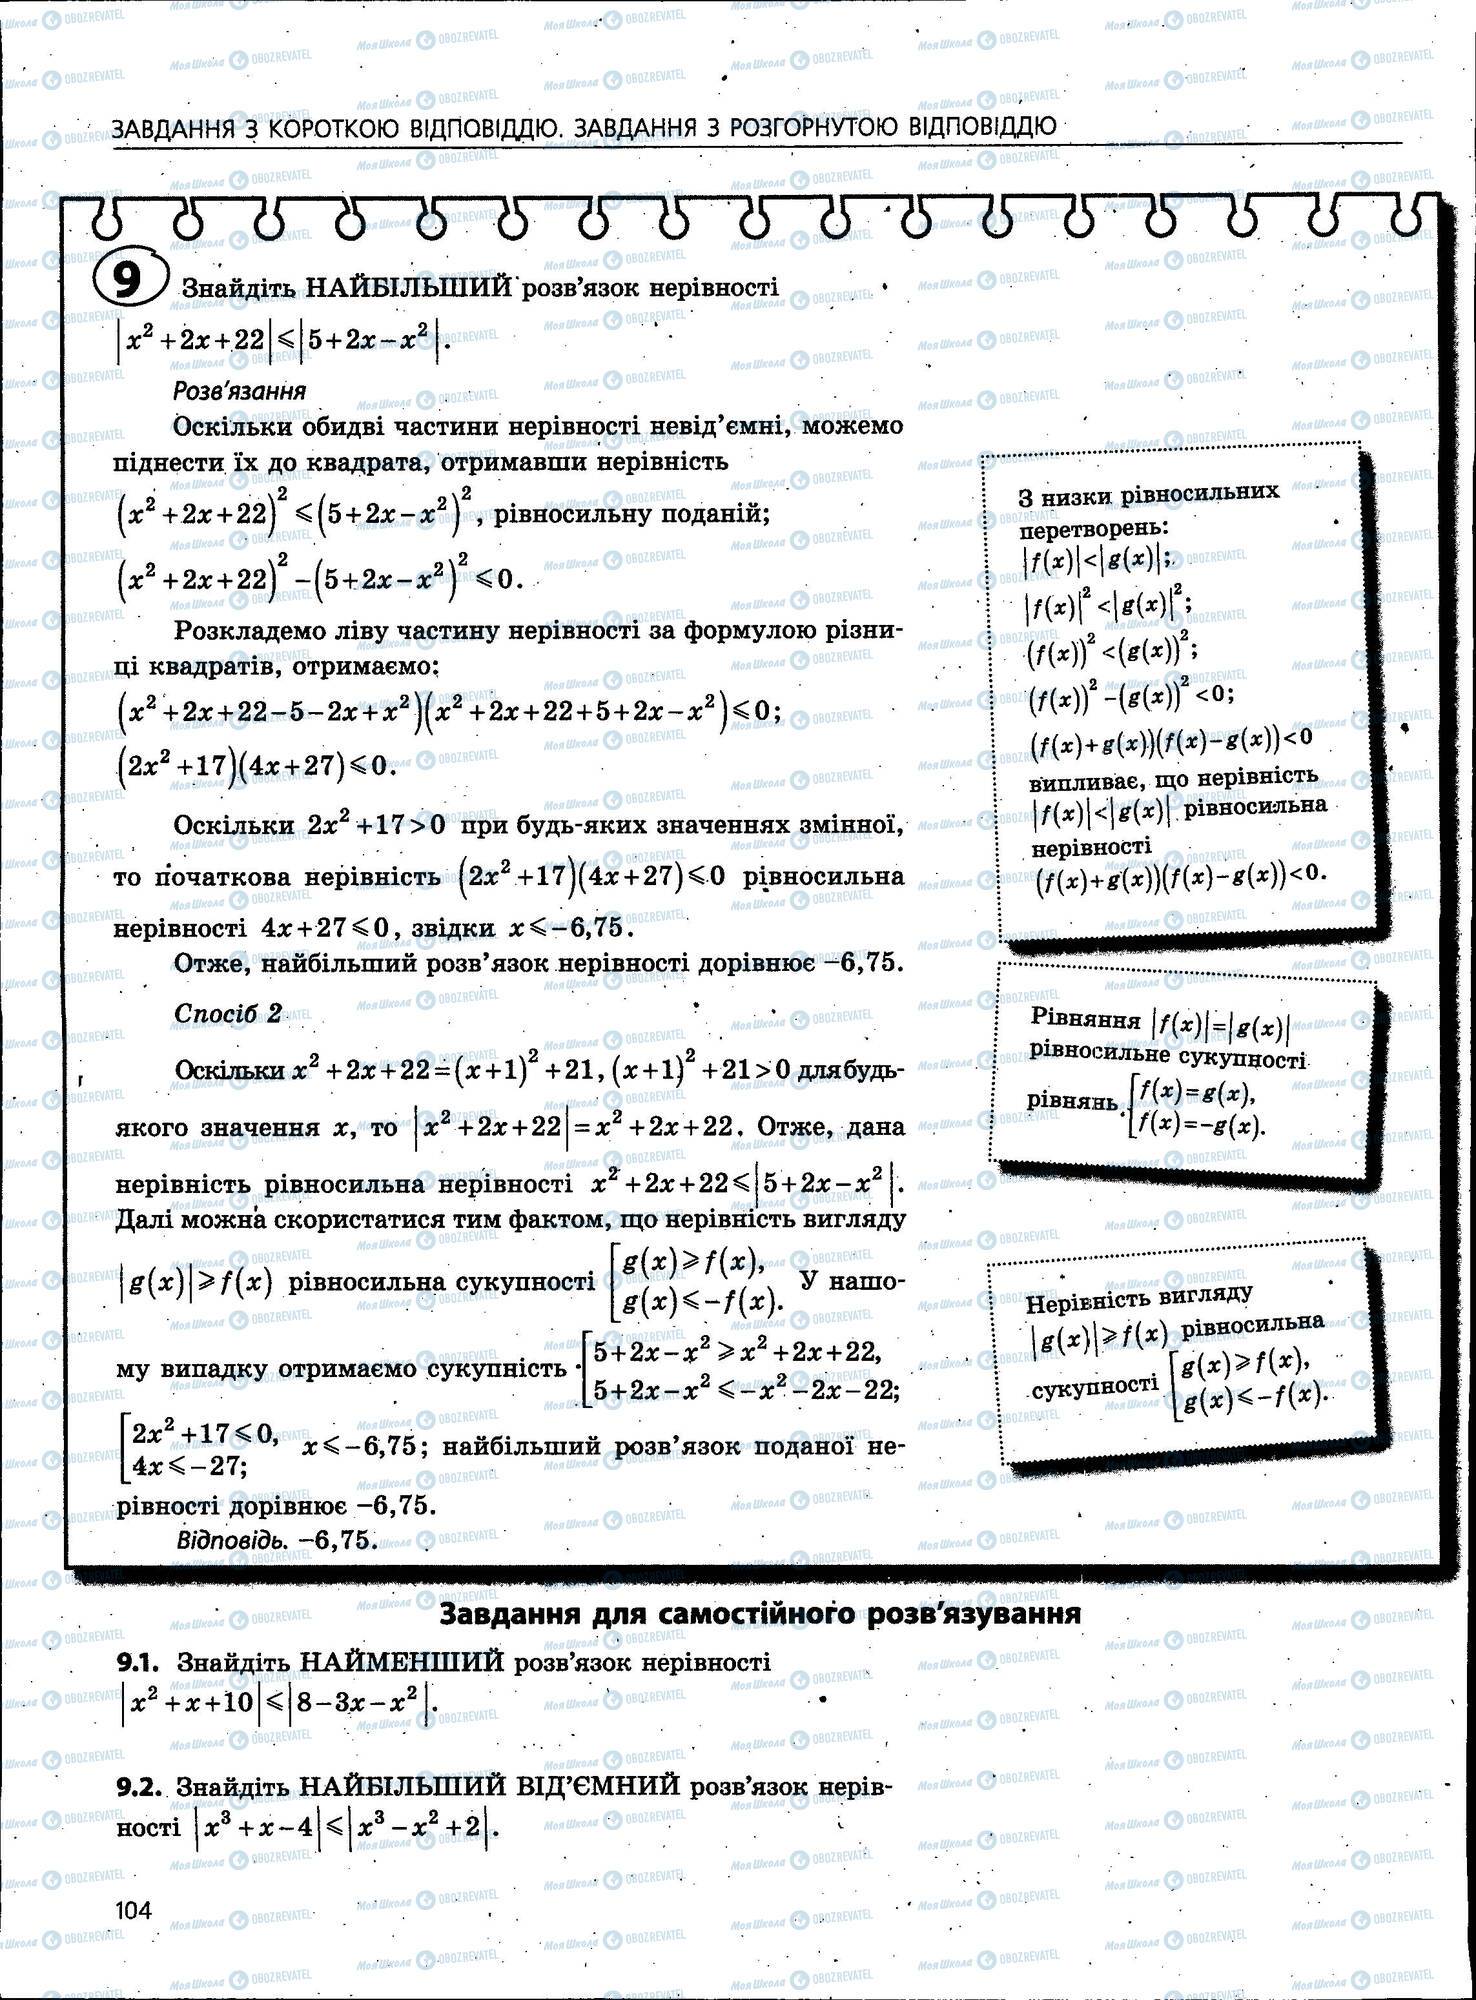 ЗАВДАННЯ З КОРОТКОЮ ВІДПОВІДДЮ. ЗАВДАННЯ З РОЗГОРНУТОЮ ВІДПОВІДДЮ
9 Знайдіть НАЙБІЛЬШИЙ розв'язок нерівності
|x² + 2x + 22| ⩽ |5 + 2x − x²|.
Розв'язання
Оскільки обидві частини нерівності невід'ємні, можемо
піднести їх до квадрата, отримавши нерівність
(x² + 2x + 22)² ⩽ (5 + 2x − x²)², рівносильну поданій;
(x² + 2x + 22)² − (5 + 2x − x²)² ⩽ 0.
Розкладемо ліву частину нерівності за формулою різни-
ці квадратів, отримаємо:
(x² + 2x + 22 − 5 − 2x + x²)(x² + 2x + 22 + 5 + 2x − x²) ⩽ 0;
(2x² + 17)(4x + 27) ⩽ 0.
Оскільки 2x² + 17 > 0 при будь-яких значеннях змінної,
то початкова нерівність (2x² + 17)(4x + 27) ⩽ 0 рівносильна
нерівності 4x + 27 ⩽ 0, звідки x ⩽ −6,75.
Отже, найбільший розв'язок нерівності дорівнює −6,75.
Спосіб 2
Оскільки x² + 2x + 22 = (x + 1)² + 21, (x + 1)² + 21 > 0 для будь-
якого значення x, то |x² + 2x + 22| = x² + 2x + 22. Отже, дана
нерівність рівносильна нерівності x² + 2x + 22 ⩽ |5 + 2x − x²|.
Далі можна скористатися тим фактом, що нерівність вигляду
|g(x)| ⩾ f(x) рівносильна сукупності [g(x) ⩾ f(x), g(x) ⩽ −f(x). У нашо-
му випадку отримаємо сукупність [5 + 2x − x² ⩾ x² + 2x + 22, 5 + 2x − x² ⩽ −x² − 2x − 22;
[2x² + 17 ⩽ 0, 4x ⩽ −27; x ⩽ −6,75; найбільший розв'язок поданої не-
рівності дорівнює −6,75.
Відповідь. −6,75.
З низки рівносильних
перетворень:
|f(x)| < |g(x)|;
|f(x)|² < |g(x)|²;
(f(x))² < (g(x))²;
(f(x))² − (g(x))² < 0;
(f(x) + g(x))(f(x) − g(x)) < 0
випливає, що нерівність
|f(x)| < |g(x)| рівносильна
нерівності
(f(x) + g(x))(f(x) − g(x)) < 0.
Рівняння |f(x)| = |g(x)|
рівносильне сукупності
рівнянь [f(x) = g(x), f(x) = −g(x).
Нерівність вигляду
|g(x)| ⩾ f(x) рівносильна
сукупності [g(x) ⩾ f(x), g(x) ⩽ −f(x).
Завдання для самостійного розв'язування
9.1. Знайдіть НАЙМЕНШИЙ розв'язок нерівності
|x² + x + 10| ⩽ |8 − 3x − x²|.
9.2. Знайдіть НАЙБІЛЬШИЙ ВІД'ЄМНИЙ розв'язок нерів-
ності |x³ + x − 4| ⩽ |x³ − x² + 2|.
104
Моя Школа OBOZREVATEL